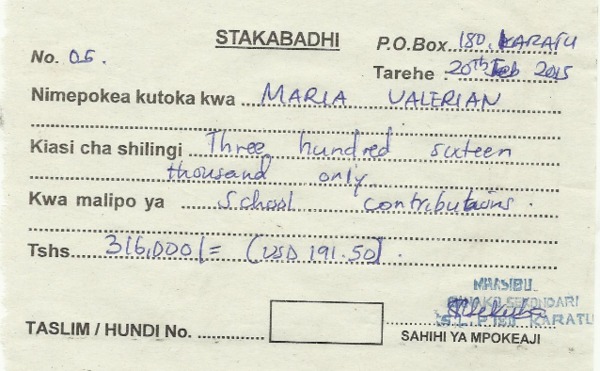 STAKABADHI
No. 05.
P.O.Box 180, KARATU
Tarehe : 20th Feb 2015
Nimepokea kutoka kwa MARIA VALERIAN
Kiasi cha shilingi Three hundred sixteen
thousand only
Kwa malipo ya School contributions.
Tshs 316,000/= (USD 191.50).
MHASIBU
SEKONDARI
S.L.P 180 KARATU
TASLIM / HUNDI No.
SAHIHI YA MPOKEAJI